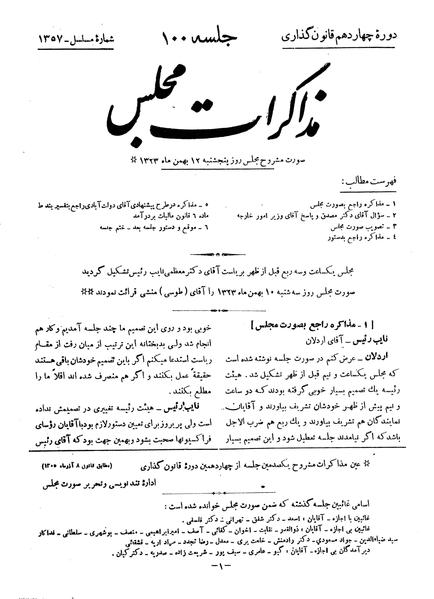 دورهٔ چهاردهم قانون گذاری
جلسه ۱۰۰
شمارهٔ مسلسل - ۱۳۵۷
مذاکرات مجلس
صورت مشروح مجلس روز پنجشنبه ۱۲ بهمن ماه ۱۳۲۳
فهرست مطالب:
۱ - مذاکره راجع بصورت مجلس
۲ - سؤال آقای دکتر مصدق و پاسخ آقای وزیر امور خارجه
۳ - تصویب صورت مجلس
۴ - مذاکره راجع بدستور
۵ - مذاکره در طرح پیشنهادی آقای دولت آبادی راجع بتفسیر بند ط
ماده ۶ قانون مالیات بر درآمد
۶ - موقع و دستور جلسه بعد - ختم جلسه
مجلس یکساعت و سه ربع قبل از ظهر بریاست آقای دکتر معظمی نایب رئیس تشکیل گردید
صورت مجلس روز سه شنبه ۱۰ بهمن ماه ۱۳۲۳ را آقای (طوسی) منشی قرائت نمودند
[۱ - مذاکره راجع بصورت مجلس]
نایب رئیس - آقای اردلان
اردلان - عرض کنم در صورت جلسه نوشته شده است
که مجلس یکساعت و نیم قبل از ظهر تشکیل شد. هیئت
رئیسه یک تصمیم بسیار خوبی گرفته بودند که دو ساعت
و نیم پیش از ظهر خودشان تشریف بیاورند و آقایان
نمایندگان هم تشریف بیاورند و یک ربع هم ضرب الاجل
باشد که اگر نیامدند جلسه تعطیل شود و این تصمیم بسیار
خوبی بود و روی این تصمیم ما چند جلسه آمدیم و کار هم
انجام شد ولی بدبختانه این ترتیب از میان رفت از مقام
ریاست استدعا میکنم اگر باین تصمیم خودشان باقی هستند
حقیقةً عمل بکنند و اگر هم منصرف شده اند اقلا ما را
مطلع بکنند.
نایب رئیس - هیئت رئیسه تغییری در تصمیمش نداده
است ولی پریروز برای تعیین دستور لازم بود با آقایان رؤسای
فراکسیونها صحبت بشود و بهمین جهت بود که آقای رئیس
عین مذاکرات مشروح یکصدمین جلسه از چهاردهمین دورهٔ قانون گذاری
(مطابق قانون ۸ آذرماه ۱۳۰۵)
ادارهٔ تند نویسی و تحریر صورت مجلس
اسامی غائبین جلسه گذشته که ضمن صورت مجلس خوانده شده است:
غائبین با اجازه - آقایان: اسعد - دکتر شفق - تهرانی - دکتر فلسفی.
غائبین بی اجازه - آقایان: تولیت - اخوان - کفائی - آصف - امیر ابراهیمی - منصف - بوشهری - سلطانی - فداکار
سید ضیاءالدین - جواد مسعودی - دکتر رادمنش - حاذقی - معدل - رضا تجدد - مراد اریه - قشقائی
دیر آمدگان بی اجازه - آقایان: گیو - عامری - سیف پور - شریعت زاده - صدریه - دکتر کیان.
-۱-